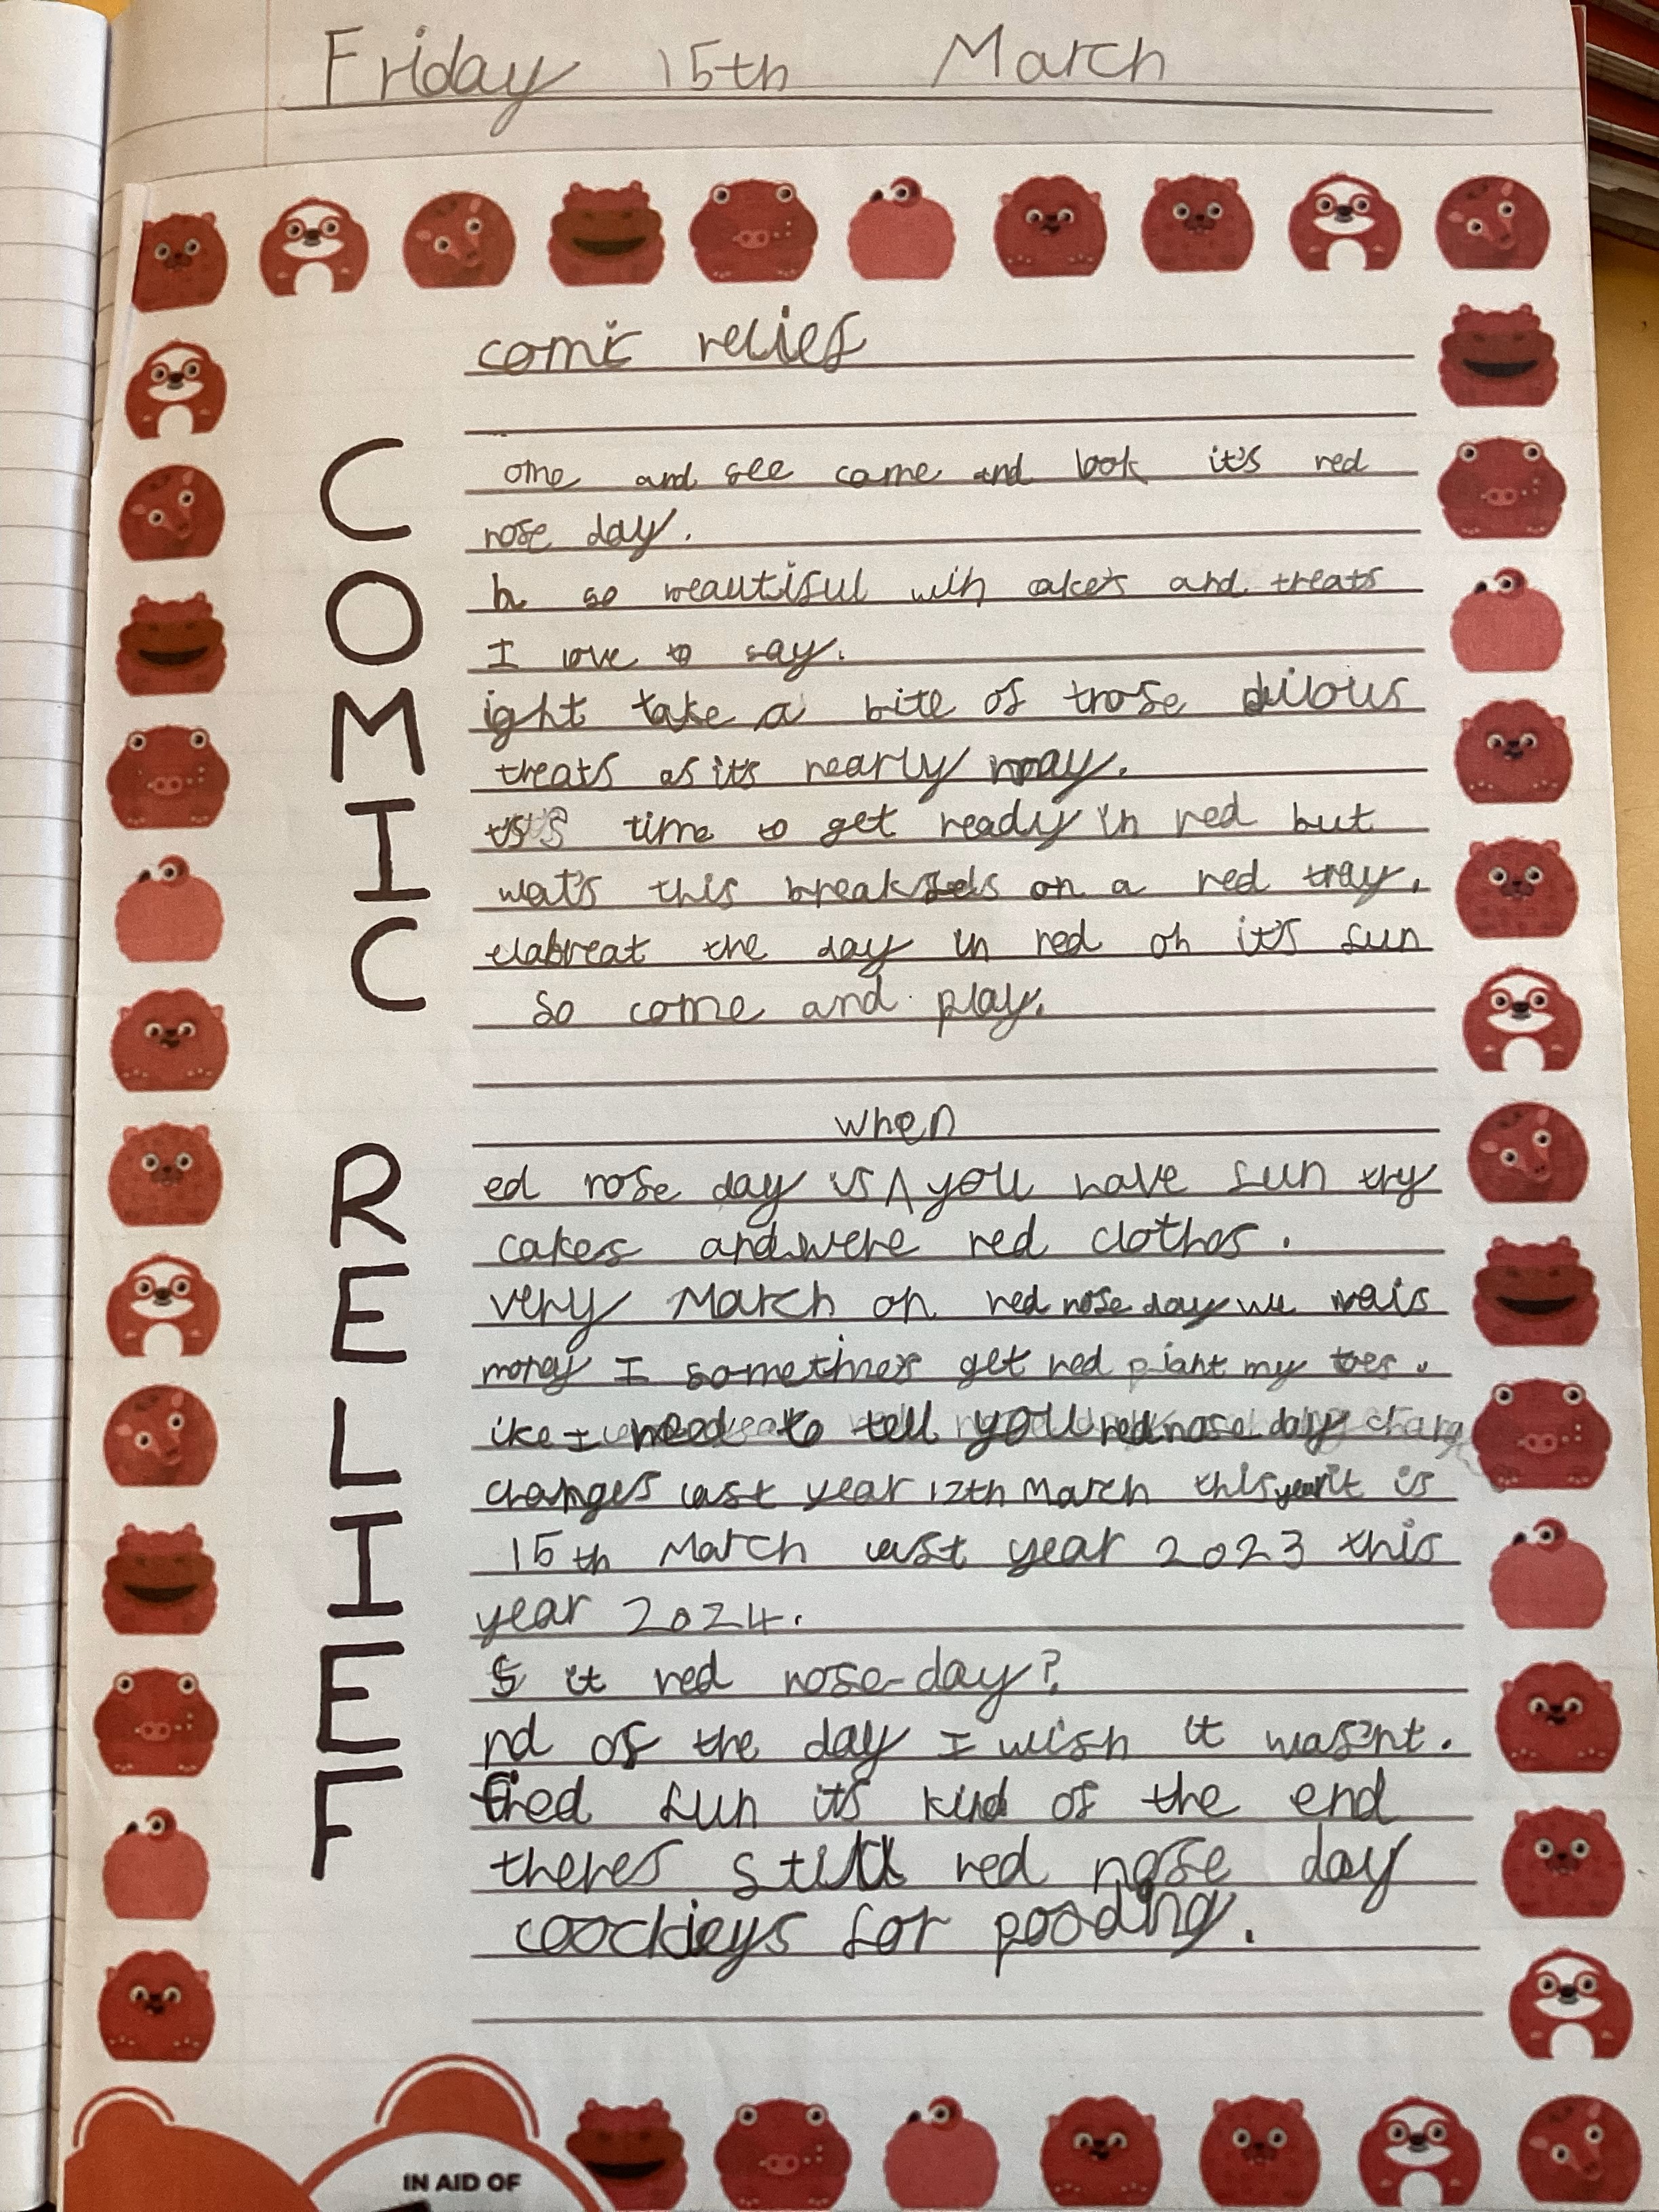 Friday 15th March
comic relief
C ome and see come and look it's red
nose day.
O h so beautiful with cakes and treats
I love to say.
M ight take a bite of those
treats as it's nearly may.
I time to get ready in red but
wat's this on a red tray.
C elabreat the day in red oh it's fun
so come and play.
when
R ed nose day is ^ you have fun try
cakes and were red clothes.
E very March on red nose day we rais
money I sometimes get red piant my toes.
L ike I need to tell you red nose day
changes last year 12th March this year it is
15th March last year 2023 this
year 2024.
I s it red nose-day?
E nd of the day I wish it wasn't.
F fun it's kind of the end
theres still red nose day
coockieys for pooding.
IN AID OF